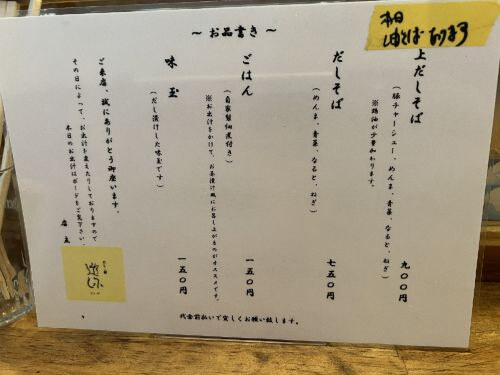 ～ お品書き ～
本日
油そば あります
上だしそば
（豚チャーシュー、めんま、青菜、なると、ねぎ）
※鶏油が少量加わります。
九〇〇円
だしそば
（めんま、青菜、なると、ねぎ）
七五〇円
ごはん
（自家製佃煮付き）
※お出汁をかけて、お茶漬け風にお召し上がるのがオススメです。
一五〇円
味玉
（だし漬けした味玉です）
一五〇円
ご来店、誠にありがとう御座います。
その日によって、お出汁を変えたりしておりますので
本日のお出汁はボードをご覧下さい。
店主
代金前払いで宜しくお願い致します。